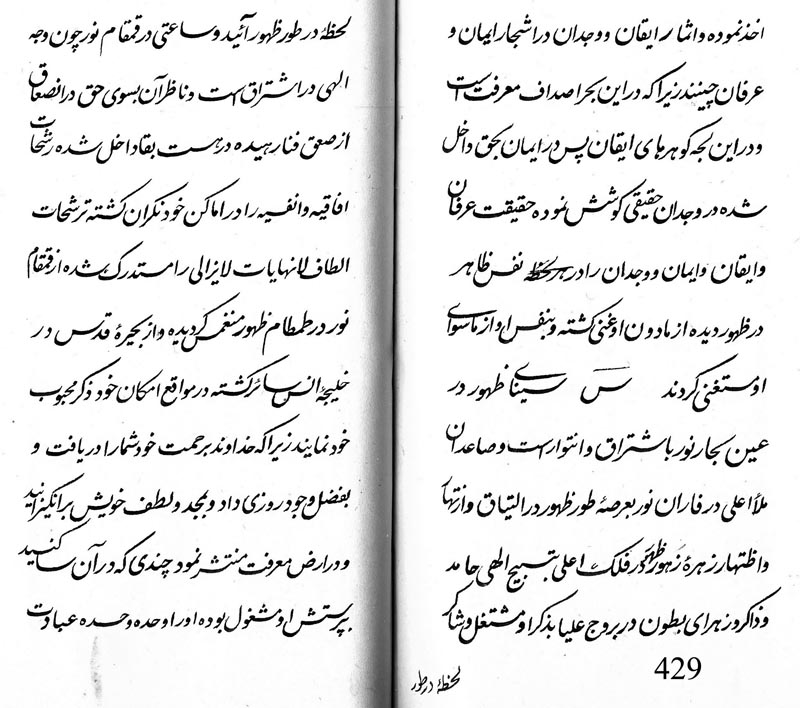 اخذ نموده و اثمار ایقان و وجدان در اشجار ایمان و
عرفان چینند زیرا که در این بحر اصداف معرفت است
و در این لجه گوهرهای ایقان پس در ایمان بحق داخل
شده در وجدان حقیقی کوشش نموده حقیقت عرفان
و ایقان و ایمان و وجدان را در هر لحظه نفس ظاهر
در ظهور دیده از مادون او غنی کشته و بنفس او از ماسوای
او مستغنی کردند س سینای ظهور در
عین بحار نور باشتراق و انتوار است و صاعدان
ملأ اعلی در فاران نور بعرصهٔ طور ظهور در التیاق و ازتهار
و اظتهار زهرهٔ زهور ظهر در فلک اعلی بتسبیح الهی حامد
و ذاکر و زهرای بطون در بروج علیا بذکر او مشتغل و شاکر
429
لحظهٔ در طور
لحظهٔ در طور ظهور آئید و ساعتی در قمقام نور چون وجه
الهی در اشتراق است و ناظر آن بسوی حق در انصعاق
از صعق فنا رهیده در هست بقا داخل شده رشحات
افاقیه و انفسیه را در اماکن خود نکران کشته ترشحات
الطاف لانهایات لایزالی را مستدرک شده از قمقام
نور در طمطام ظهور منغمس کردیده و از بحیرهٔ قدس در
خلیجهٔ انس سائر کشته در مواقع امکان خود ذکر محبوب
خود نمایند زیرا که خداوند برحمت خود شما را دریافت و
بفضل وجود روزی داد و بمجد و لطف خویش برانکیزانید
و در ارض معرفت منتشر نمود چندی که در آن ساکنید
بپرستش او مشغول بوده او را وحده وحده عبادت